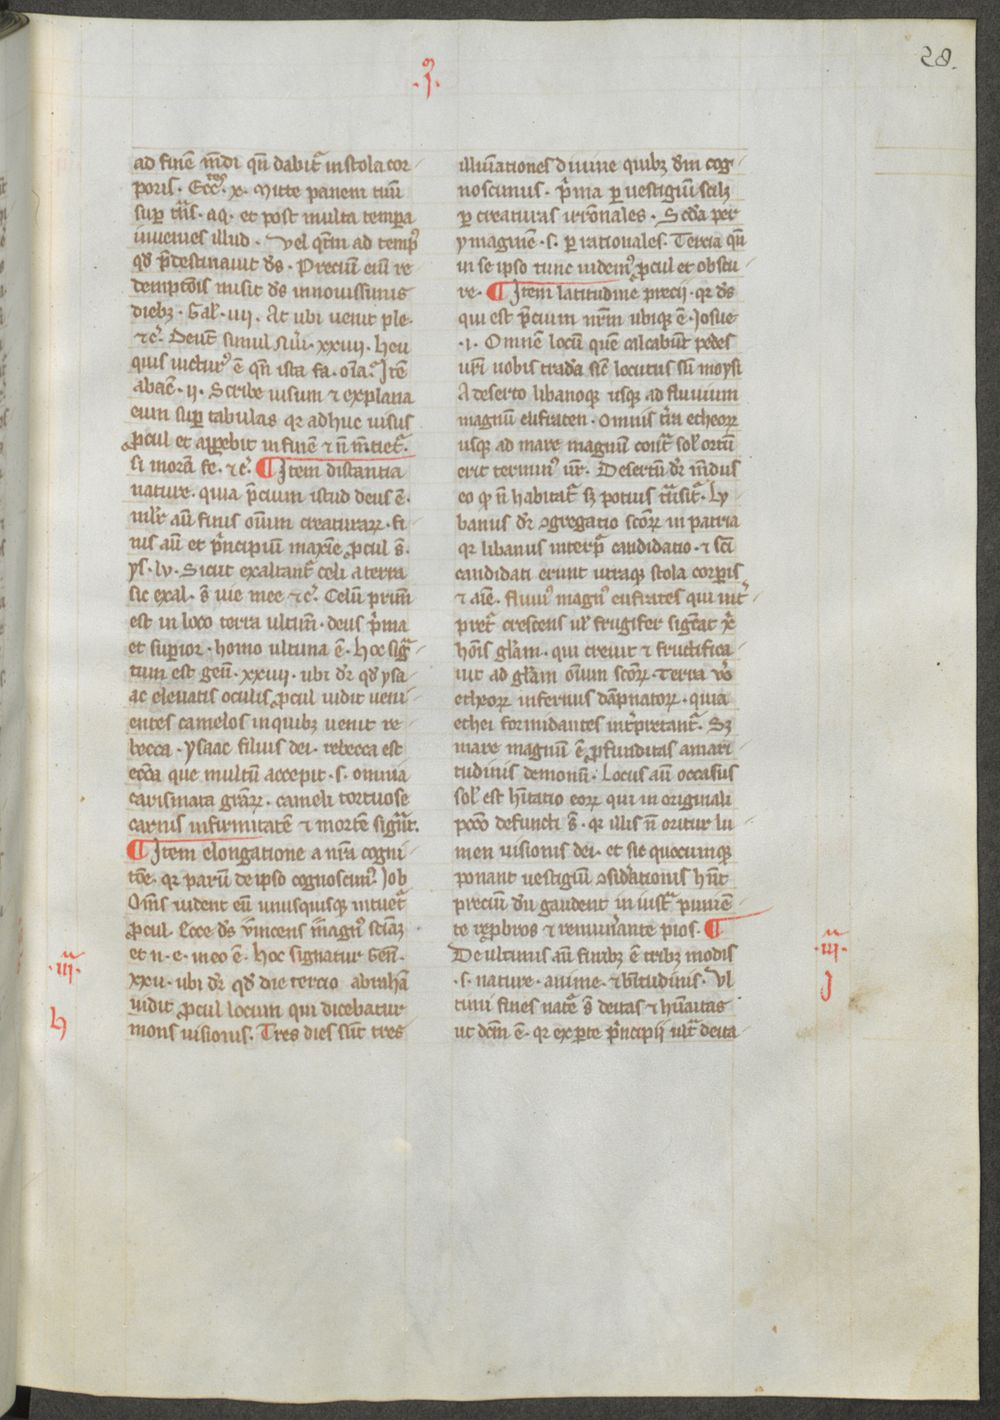 28.
.j.
ad finē mūdi qn̄ dabit᷑ in stola cor
poris. Ecc̄s. x. Mitte panem tuū
suꝑ trās. aq. et post multa tempora
inuenies illud. vel qm̄ ad temp᷒
qd̓ p̄destinauit ds̄. Precium eiu re
demptōis misit ds̄ in nouissimis
diebꝫ. Gal̓. iiij. At ubi uenit ple.
⁊c̓. Deut̄ simul xxiiij. heu
quis uictur᷒ ē qn̄ ista fa. oīa. Itē
abac̄. ij. Scribe uisum ⁊ explana
eum suꝑ tabulas qr adhuc uisus
ꝓcul et apparebit in finē ⁊ nō mētiet᷑.
si morā fe. ⁊c̓. ¶ Item distantia
nature. quia p̄cium istud deus ē.
aū finis oīum creaturaꝝ. fi
nis aū et p̓ncipiū maxīe ꝓcul s̄.
ys. lv. Sicut exaltant᷑ celi a terra
sic exal. s̄ uie mee ⁊c̓. Celū primū
est in loco terra ultimū. deus p̓ma
et suꝑior. homo ultima ē. hoc sig᷑
tum est gen̄. xxiiij. ubi dr̄ qd̓ ysa
ac eleuatis oculis ꝓcul uidit ueni
entes camelos in quibꝫ uenit re
becca. ysaac filius dei. rebecca est
ecc̄a que multū accepit. s. omnia
carismata gr̄aꝝ. cameli tortuose
carnis infirmitatē ⁊ mortē signāt.
¶ Item elongatione a nr̄a cogni
tōe. qr parū de ipso cognoscim᷒. Job
Oms̄ uident eū unusquisqꝫ intuet᷑
ꝓcul. Ecce ds̄ uincens magn᷒ sciam
et n. e. meo ē. hoc signatur Gen̄.
xxij. ubi dr̄ qd̓ die tercio abrahā
uidit ꝓcul locum qui dicebatur
mons uisionis. Tres dies sūt tres
.iij.
h
illūinationes diuine quibꝫ dm̄ cog
noscimus. p̓ma ꝑ uestigiū scilꝫ
ꝑ creaturas irrōnales. Scd̓a per
ymaginē. s. ꝑ rationales. Tercia qn̄
in se ipso tunc uidem᷒ ꝓcul et obscu
re. ¶ Item latitudine precij. qr ds̄
qui est p̄cium nr̄m ubiqꝫ ē. Josue
.i. Omnē locū quē calcabūt pedes
ur̄i uobis tradā sic̄ locutus sū moysi
A deserto libanoqꝫ usqꝫ ad fluuium
magnū eufraten. Omnis tr̄a etheoꝝ
usqꝫ ad mare magnū cont᷑ sol̓ ortū
erit termin᷒ ur̄. Desertū dr̄ mūdus
eo qꝫ nō habitat᷑ sꝫ potius trāsit᷑. Ly
banus dr̄ ꝯgregatio sc̄oꝝ in patria
qr libanus interp᷑ candidatio. ⁊ sc̄i
candidati erunt utraqꝫ stola corporis
⁊ aīe. fluui᷒ magn᷒ eufrates qui int̓
pret᷑ crescens ul̓ frugifer sigēat xp̄i
hōis gl̄am. qui creuit ⁊ fructifica
uit ad gl̄am oīum sc̄oꝝ. Terra u̓o
etheoꝝ infernus dāpnatoꝝ. quia
ethei formidantes int̓pretant᷑. Sꝫ
mare magnū ē ꝓfunditas amari
tudinis demonū. Locus aū occasus
sol̓ est hītatio eoꝝ qui in originali
pcc̄o defuncti s̄. qr illis nō oritur lu
men uisionis dei. et sic quocumqꝫ
ponant uestigiū ꝯsid̓ationis hn̄t
precium dn̄ gaudent in iust᷑ punie
te reꝓbros ⁊ remun̓ante pios. ¶
De ultimis aū finibꝫ ē tribꝫ modis
.s. nature. anime. ⁊ btītudinis. Ul
timi fines natē s̄ deitas ⁊ hūanitas
ut dc̄m ē. qr ex parte p̓ncipij ult᷑ deita
.iij.
J